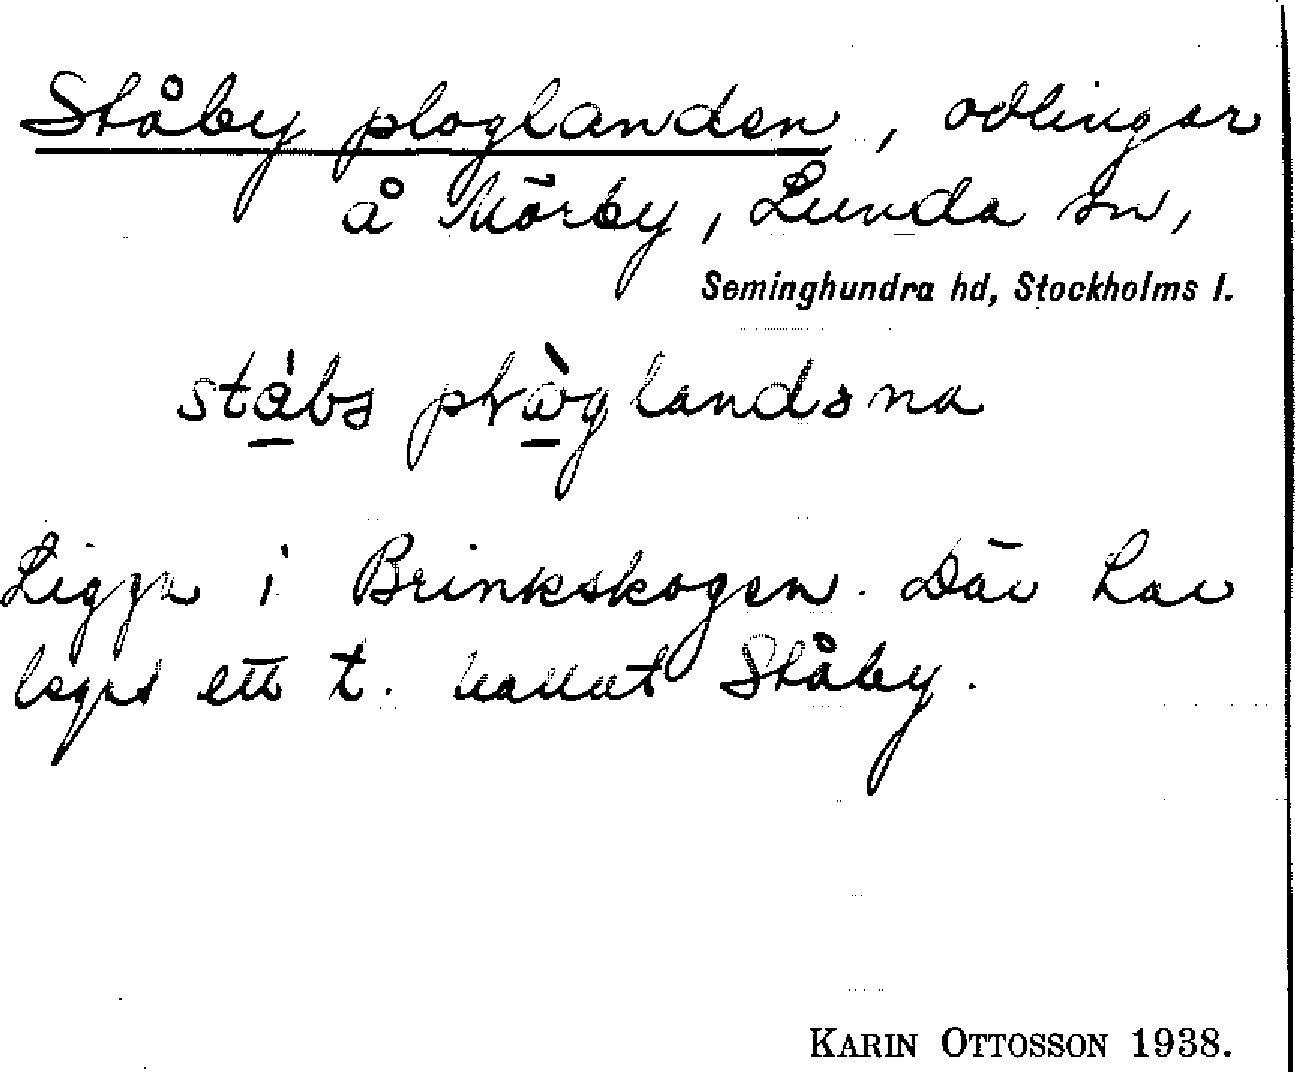 Ståby ploglanden, odlingar
å Mörby, Lunda sn,
Seminghundra hd, Stockholms l.
stábɘ plòglandɘna
Ligga i Brinkskogen. Där har
legat ett t. kallat Ståby.
KARIN OTTOSSON 1938.